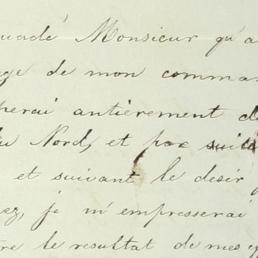 uadé Monsieur qu'a
ge de mon comman
herai antièrement d
u Nord, et par suite
et suivant le desir
ez, je m'empresserai
re le resultat de mes